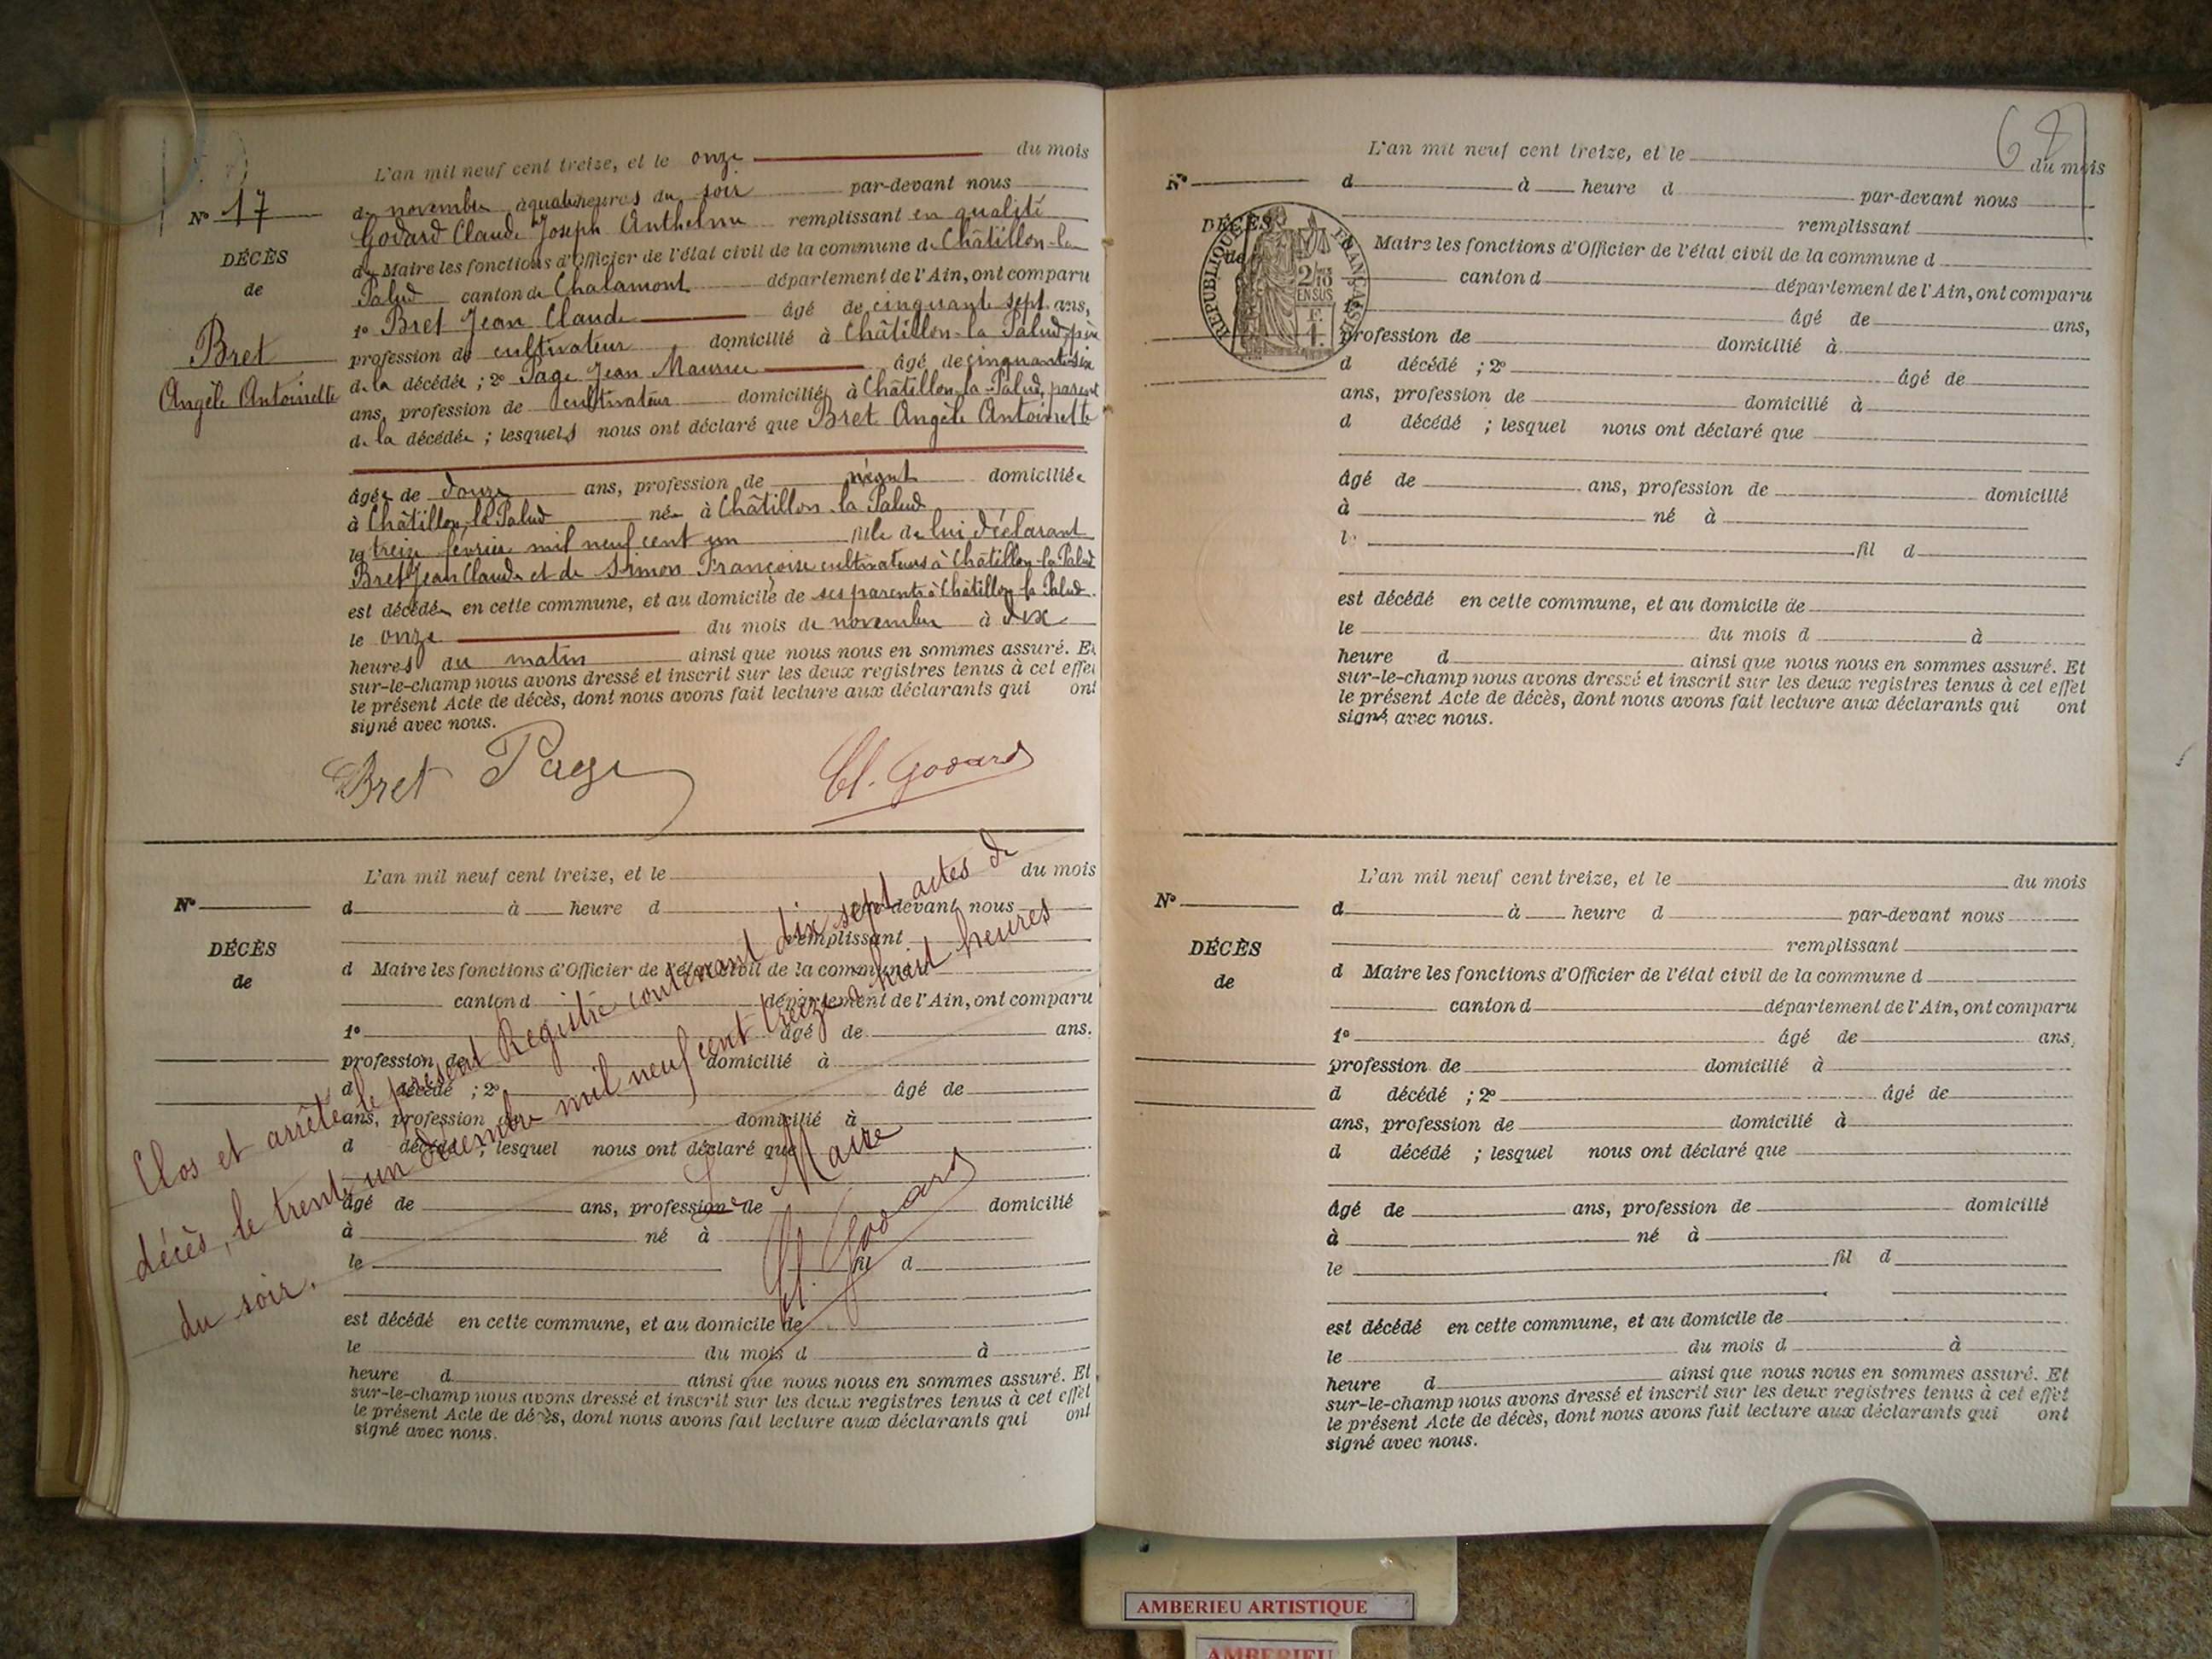 L'an mil neuf cent treize, et le onze du mois
N° 17
de novembre à quatre heures du soir par-devant nous
Godard Claude Joseph Anthelme remplissant en qualité
DÉCÈS
de
de Maire les fonctions d'Officier de l'état civil de la commune de Châtillon-la-
Palud canton de Chalamont département de l'Ain, ont comparu
1° Bret Jean Claude âgé de cinquante sept ans,
Bret
Angèle Antoinette
profession de cultivateur domicilié à Châtillon-la Palud, père
de la décédée ; 2° Page Jean Maurice âgé de cinquante six
ans, profession de cultivateur domicilié à Châtillon-la-Palud, parent
de la décédée ; lesquels nous ont déclaré que Bret Angèle Antoinette
âgée de douze ans, profession de néant domiciliée
à Châtillon, la Palud née à Châtillon-la Palud
le treize février mil neuf cent un fille de lui déclarant
Bret Jean Claude et de Simon Françoise cultivateurs à Châtillon-la Palud
est décédée en cette commune, et au domicile de ses parents à Châtillon-la Palud.
le onze du mois de novembre à dix
heures du matin ainsi que nous nous en sommes assuré. Et
sur-le-champ nous avons dressé et inscrit sur les deux registres tenus à cet effet
le présent Acte de décès, dont nous avons fait lecture aux déclarants qui ont
signé avec nous.
Bret Page Cl. Godard
L'an mil neuf cent treize, et le du mois
N°
d à heure d par-devant nous
remplissant
DÉCÈS
de
d Maire les fonctions d'Officier de l'état civil de la commune d
canton d département de l'Ain, ont comparu
1° âgé de ans.
profession de domicilié à
d décédé ; 2° âgé de
ans, profession de domicilié à
d décédé ; lesquel nous ont déclaré que
âgé de ans, profession de domicilié
à né à
le fil d
est décédé en cette commune, et au domicile de
le du mois d à
heure d ainsi que nous nous en sommes assuré. Et
sur-le-champ nous avons dressé et inscrit sur les deux registres tenus à cet effet
le présent Acte de décès, dont nous avons fait lecture aux déclarants qui ont
signé avec nous.
Clos et arrêté le présent Registre contenant dix sept actes de
décès, le trente un décembre mil neuf cent treize à huit heures
du soir.
Le Maire
Cl. Godard
68
L'an mil neuf cent treize, et le du mois
N°
d à heure d par-devant nous
remplissant
DÉCÈS
de
RÉPUBLIQUE FRANÇAISE
2/10
EN SUS
F.
1.
Maire les fonctions d'Officier de l'état civil de la commune d
canton d département de l'Ain, ont comparu
âgé de ans,
profession de domicilié à
d décédé ; 2° âgé de
ans, profession de domicilié à
d décédé ; lesquel nous ont déclaré que
âgé de ans, profession de domicilié
à né à
l fil d
est décédé en cette commune, et au domicile de
le du mois d à
heure d ainsi que nous nous en sommes assuré. Et
sur-le-champ nous avons dressé et inscrit sur les deux registres tenus à cet effet
le présent Acte de décès, dont nous avons fait lecture aux déclarants qui ont
signé avec nous.
L'an mil neuf cent treize, et le du mois
N°
d à heure d par-devant nous
remplissant
DÉCÈS
de
d Maire les fonctions d'Officier de l'état civil de la commune d
canton d département de l'Ain, ont comparu
1° âgé de ans,
profession de domicilié à
d décédé ; 2° âgé de
ans, profession de domicilié à
d décédé ; lesquel nous ont déclaré que
âgé de ans, profession de domicilié
à né à
le fil d
est décédé en cette commune, et au domicile de
le du mois d à
heure d ainsi que nous nous en sommes assuré. Et
sur-le-champ nous avons dressé et inscrit sur les deux registres tenus à cet effet
le présent Acte de décès, dont nous avons fait lecture aux déclarants qui ont
signé avec nous.
AMBERIEU ARTISTIQUE
AMBERIEU